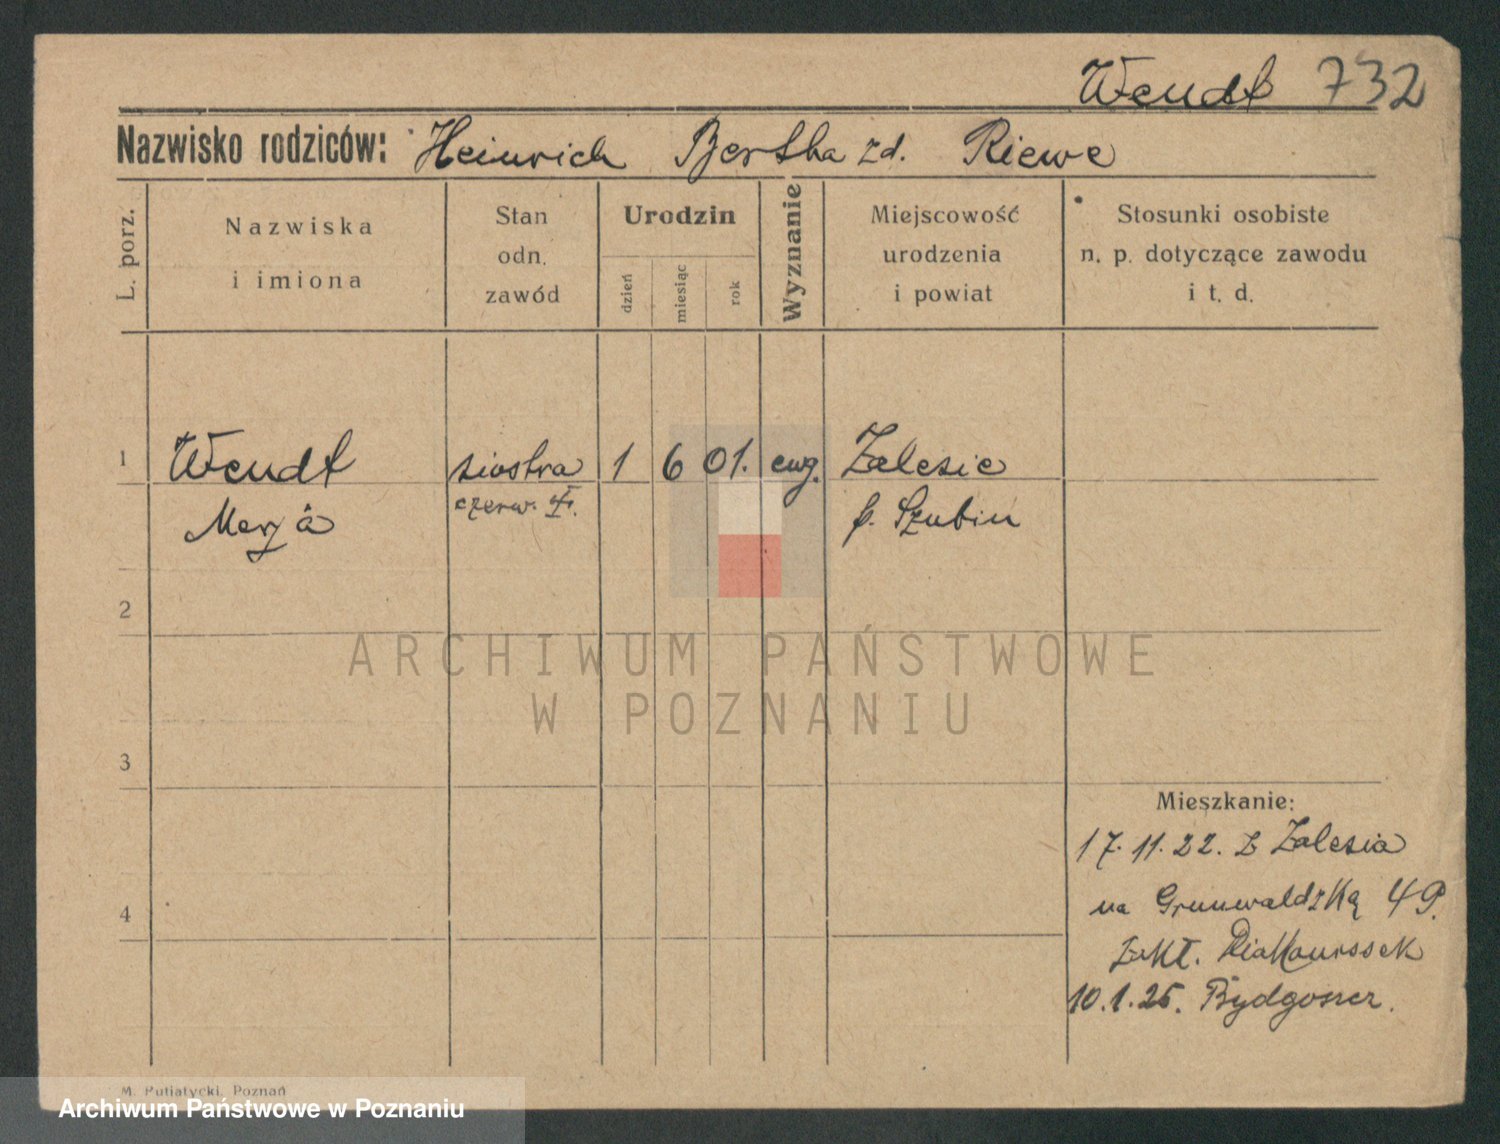 Wendt 732
Nazwisko rodziców: Heinrich Bertha zd. Riewe
L. porz.
Nazwiska
i imiona
Stan
odn.
zawód
Urodzin
dzień
miesiąc
rok
Wyznanie
Miejscowość
urodzenia
i powiat
Stosunki osobiste
n. p. dotyczące zawodu
i t. d.
1 Wendt siostra 1 6 01. ewg. Zalesie
czerw.
Merja p. Szubin
2
ARCHIWUM PAŃSTWOWE
W POZNANIU
3
Mieszkanie:
17.11.22. z Zalesia
na Grunwaldzką 49.
4
Zakł. Diakonissek
10.1.25. Bydgoszcz.
M. Putiatycki, Poznań
Archiwum Państwowe w Poznaniu